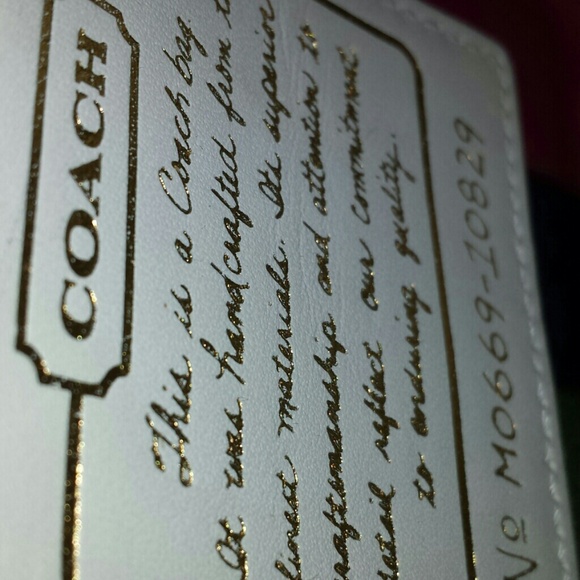 COACH
This is a Coach bag.
It was handcrafted from t
finest materials. Its superior
craftsmanship and attention to
detail reflect our commitment
to enduring quality.
No M0669-10829